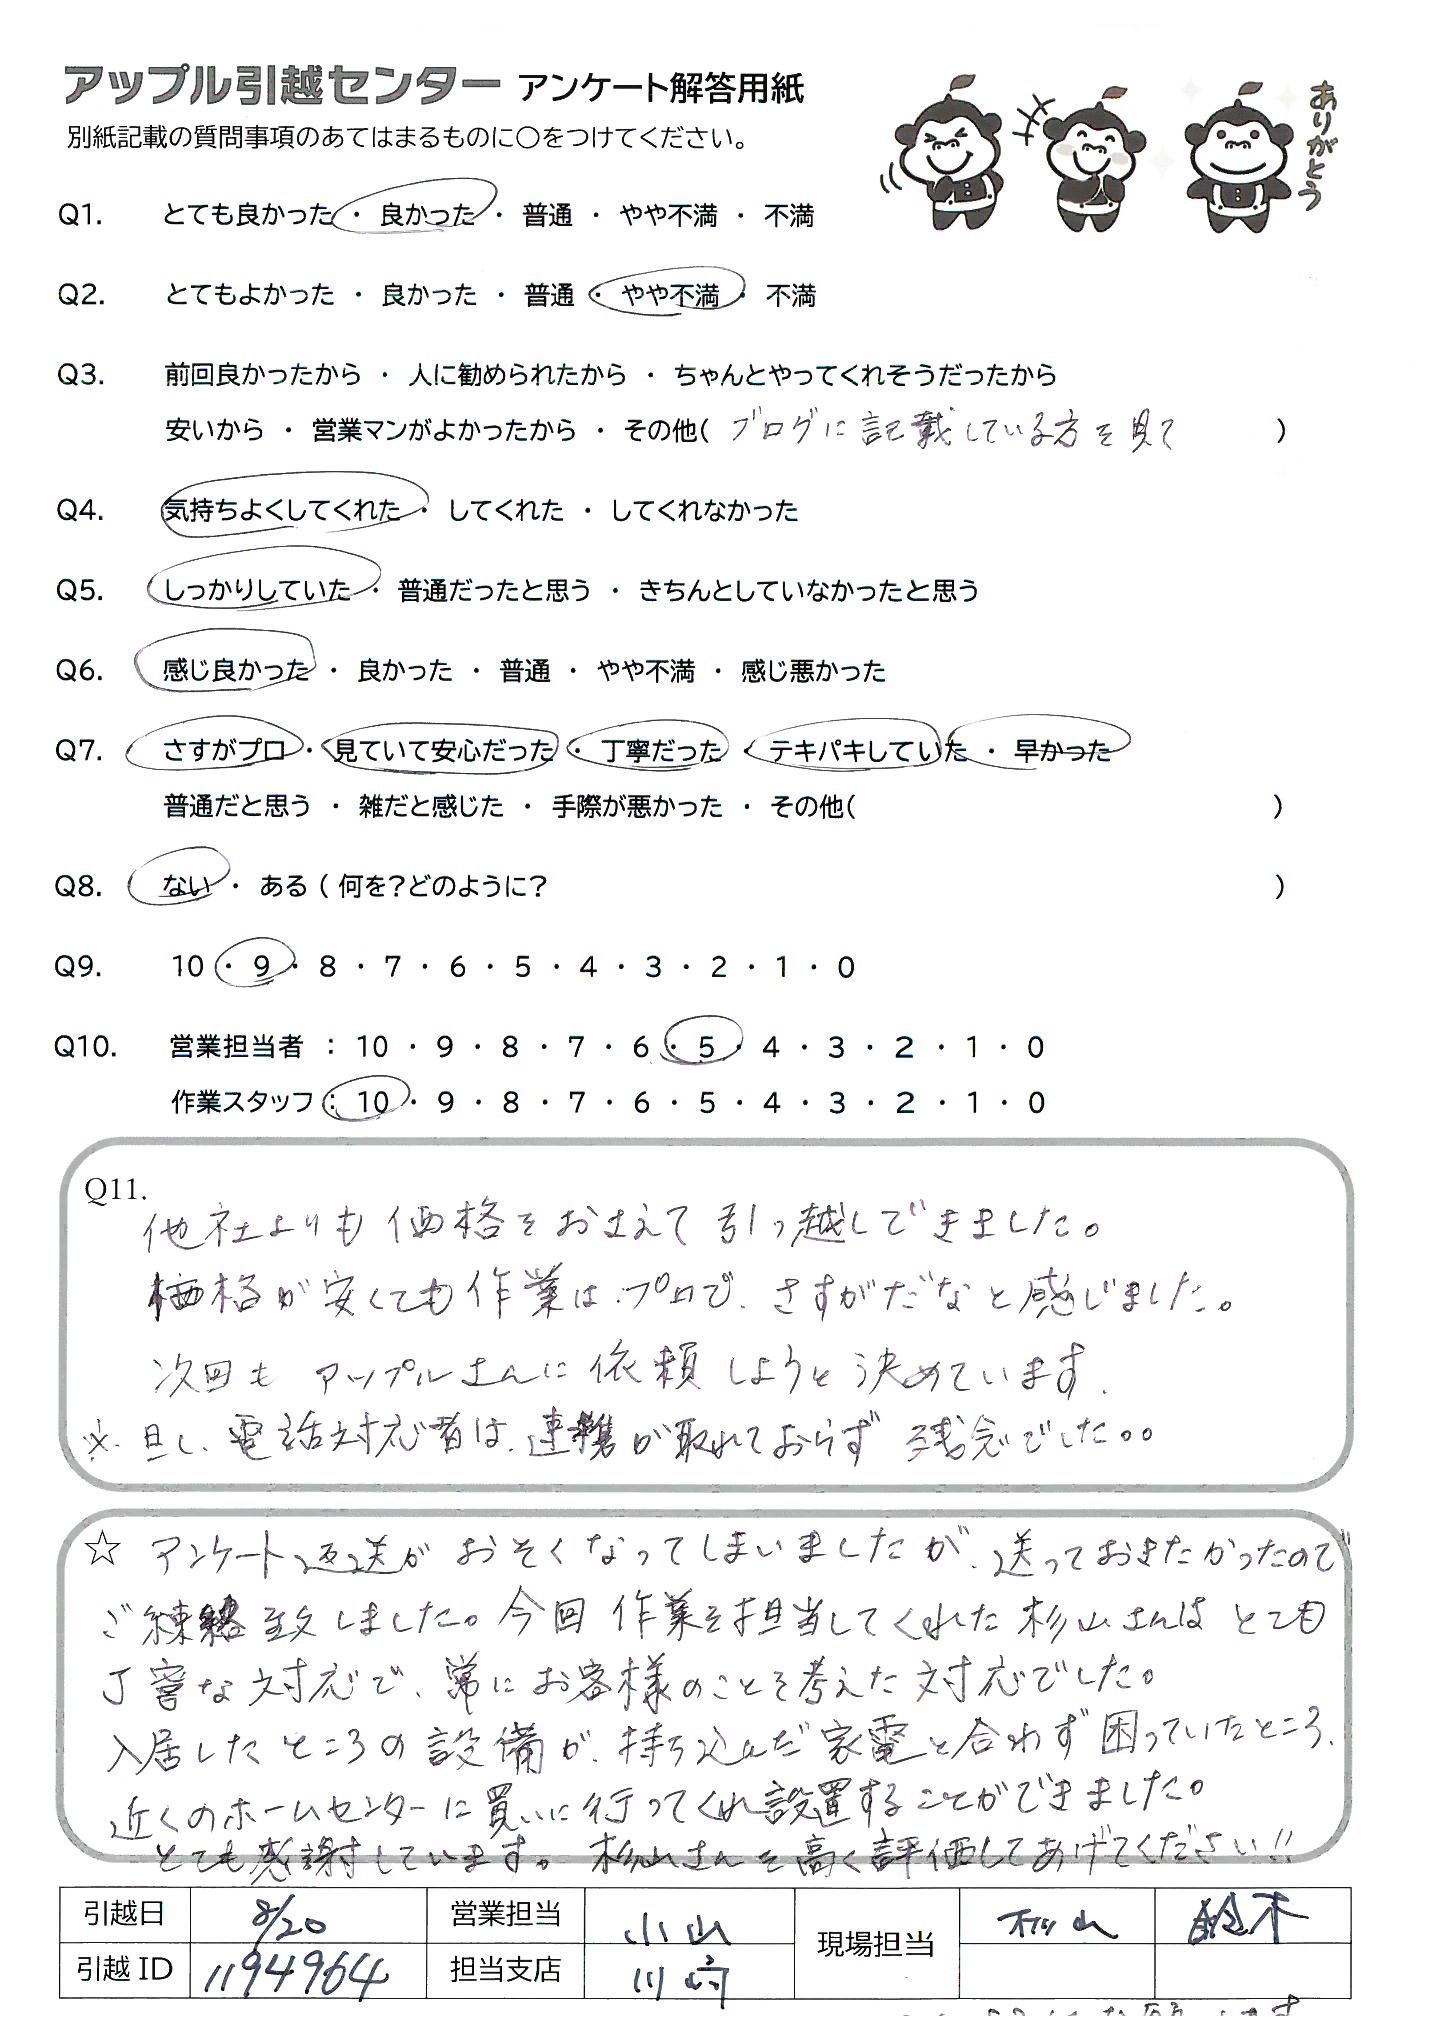 アップル引越センター アンケート解答用紙
ありがとう
別紙記載の質問事項のあてはまるものに〇をつけてください。
Q1. とても良かった ・ 良かった ・ 普通 ・ やや不満 ・ 不満
Q2. とてもよかった ・ 良かった ・ 普通 ・ やや不満 ・ 不満
Q3. 前回良かったから ・ 人に勧められたから ・ ちゃんとやってくれそうだったから
安いから ・ 営業マンがよかったから ・ その他( ブログに記載している方を見て )
Q4. 気持ちよくしてくれた ・ してくれた ・ してくれなかった
Q5. しっかりしていた ・ 普通だったと思う ・ きちんとしていなかったと思う
Q6. 感じ良かった ・ 良かった ・ 普通 ・ やや不満 ・ 感じ悪かった
Q7. さすがプロ ・ 見ていて安心だった ・ 丁寧だった ・ テキパキしていた ・ 早かった
普通だと思う ・ 雑だと感じた ・ 手際が悪かった ・ その他( )
Q8. ない ・ ある ( 何を?どのように? )
Q9. 10 ・ 9 ・ 8 ・ 7 ・ 6 ・ 5 ・ 4 ・ 3 ・ 2 ・ 1 ・ 0
Q10. 営業担当者 : 10 ・ 9 ・ 8 ・ 7 ・ 6 ・ 5 ・ 4 ・ 3 ・ 2 ・ 1 ・ 0
作業スタッフ : 10 ・ 9 ・ 8 ・ 7 ・ 6 ・ 5 ・ 4 ・ 3 ・ 2 ・ 1 ・ 0
Q11.
他社よりも価格をおさえて引っ越しできました。
価格が安くても作業は、プロで、さすがだなと感じました。
次回も アップルさんに依頼しようと決めています。
※. 旦し、電話対応者は、連携が取れておらず 残念でした。。
☆ アンケート返送が おそくなってしまいましたが、送っておきたかったので
ご練絡致しました。今回 作業を担当してくれた杉山さんは とても
丁寧な対応で、常にお客様のことを考えた対応でした。
入居したところの設備が、持ち込んだ家電と合わず困っていたところ、
近くのホームセンターに買いに行ってくれ設置することができました。
とても感謝しています。杉山さんを高く評価してあげてください!!
引越日 8/20 営業担当 小山 現場担当 杉山 鈴木
引越ID 1194964 担当支店 川崎